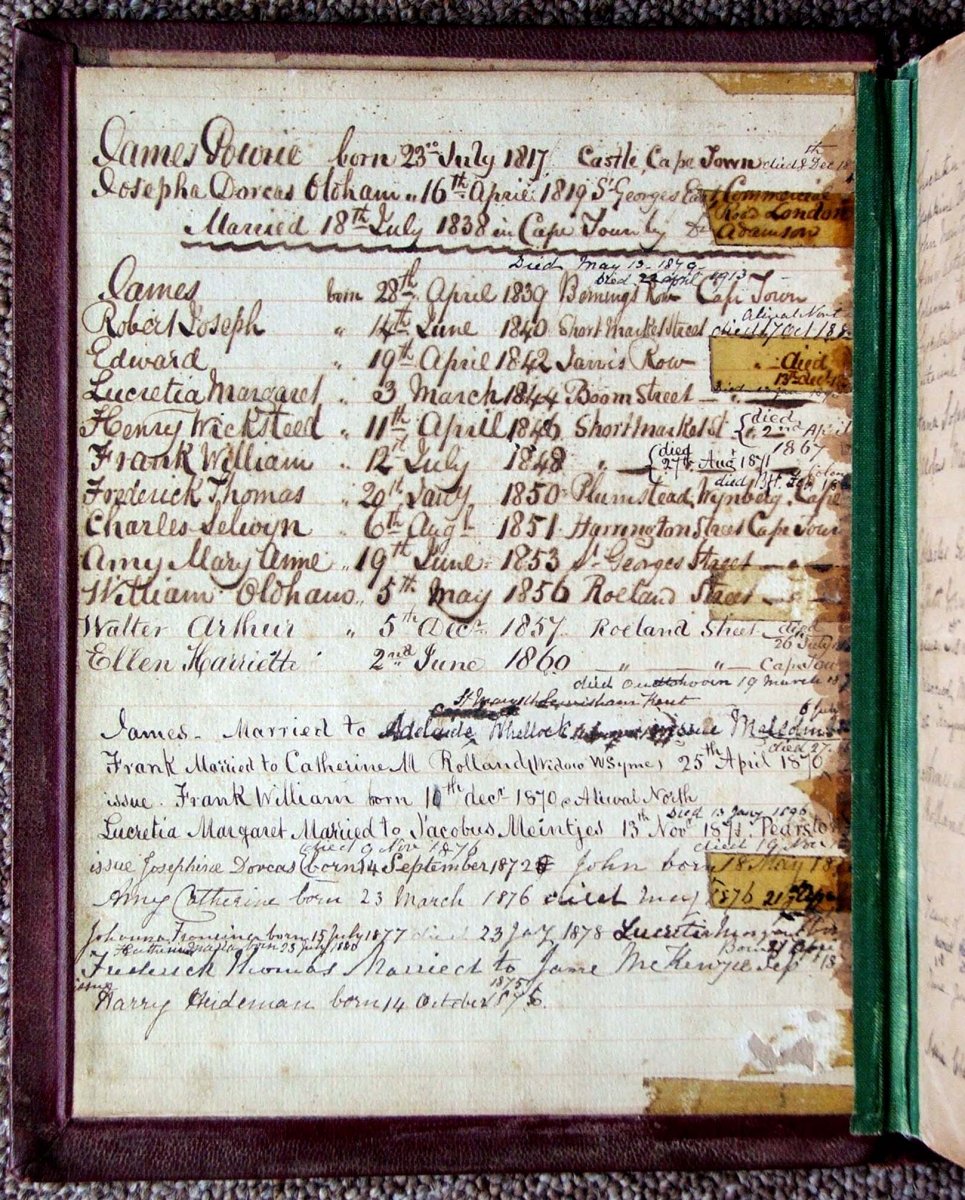 James Powrie born 23rd July 1817 Castle, Cape Town died 8th Dec
Josepha Dorcas Oldham " 16th April 1819 St Georges East, Commercial Road London
Married 18th July 1838 in Cape Town by Dr Adamson
Died May 13. 1879
Died 22 April 1913
James born 28th April 1839 Bernings Row Cape Town
Robert Joseph " 14th June 1840 Short Market Street died 7 Oct Aliwal North
Edward " 19th April 1842 Jarvis Row died
Lucretia Margaret " 3 March 1844 Boom Street
Henry Wicksteed " 11th April 1846 Shortmarket St died 2nd April 1867
Frank William " 12th July 1848 " died 27th Augt 1871
Frederick Thomas " 20th Jany 1850 Plumstead, Wynberg. Cape
Charles Selwyn " 6th Augt 1851 Harrington Street Cape Town
Amy Mary Anne " 19th June 1853 St Georges Street
William Oldham " 5th May 1856 Roeland Street
Walter Arthur " 5th Decr 1857 Roeland Street died 26 July
Ellen Harriette 2nd June 1860 " " Cape Tow
died Oudtshoorn 19 March
St Marys Lewisham Kent
James - Married to Adelaide Whellock issue
Frank Married to Catherine M Rolland (Widow W Syme) 25th April 1870 died 27
issue. Frank William born 10th decr 1870 Aliwal North
Died 13 Jany 1896
Lucretia Margaret Married to Jacobus Meintjes 13th Novr 1871. Pearston
died 9 Nov 1876 died 19 Nov
issue Josephine Dorcas born 14 September 1872 John born 18 May
Amy Catherine born 23 March 1876 died May 1876
Johanna Francina born 15 July 1877 died 23 Jay 1878 Lucretia Margaret
born 23 July Born 21 Apri
Frederick Thomas Married to Jane McKenzie Sep
issue
Harry Heideman born 14 October 1875